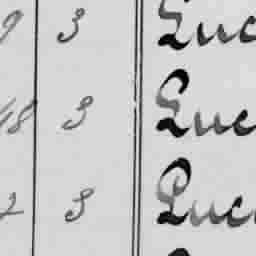 9 3 Luc
48 3 Luc
2 3 Luc